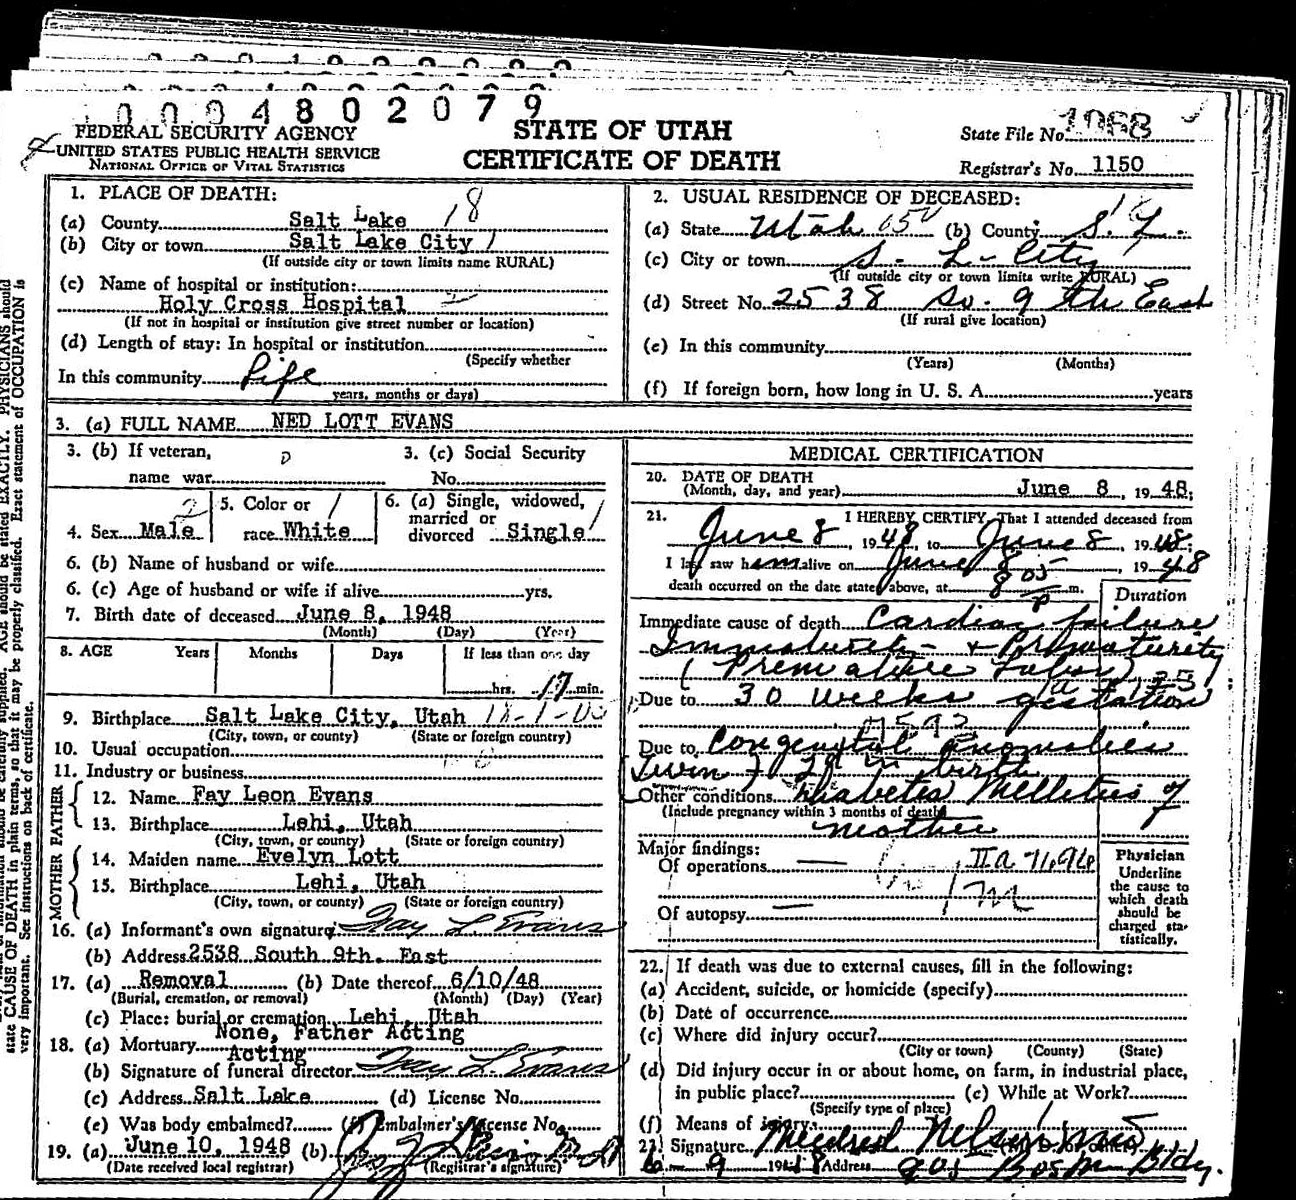 0004802079
FEDERAL SECURITY AGENCY
UNITED STATES PUBLIC HEALTH SERVICE
NATIONAL OFFICE OF VITAL STATISTICS
STATE OF UTAH
CERTIFICATE OF DEATH
State File No. 1068
Registrar's No. 1150
1. PLACE OF DEATH: 18
(a) County Salt Lake
(b) City or town Salt Lake City 1
(If outside city or town limits name RURAL)
(c) Name of hospital or institution:
Holy Cross Hospital
(If not in hospital or institution give street number or location)
(d) Length of stay: In hospital or institution
(Specify whether
In this community Life
years, months or days)
2. USUAL RESIDENCE OF DECEASED:
(a) State Utah (b) County S. L.
(c) City or town S. L. City
(If outside city or town limits write RURAL)
(d) Street No. 2538 So. 9th East
(If rural give location)
(e) In this community
(Years) (Months)
(f) If foreign born, how long in U. S. A. years
3. (a) FULL NAME NED LOTT EVANS
3. (b) If veteran,
name war
3. (c) Social Security
No.
4. Sex Male
5. Color or
race White
6. (a) Single, widowed,
married or
divorced Single
6. (b) Name of husband or wife
6. (c) Age of husband or wife if alive yrs.
7. Birth date of deceased June 8, 1948
(Month) (Day) (Year)
8. AGE Years Months Days If less than one day
hrs. 17 min.
9. Birthplace Salt Lake City, Utah
(City, town, or county) (State or foreign country)
10. Usual occupation
11. Industry or business
FATHER
12. Name Fay Leon Evans
13. Birthplace Lehi, Utah
(City, town, or county) (State or foreign country)
MOTHER
14. Maiden name Evelyn Lott
15. Birthplace Lehi, Utah
(City, town, or county) (State or foreign country)
16. (a) Informant's own signature Fay L Evans
(b) Address 2538 South 9th. East
17. (a) Removal (b) Date thereof 6/10/48
(Burial, cremation, or removal) (Month) (Day) (Year)
(c) Place: burial or cremation Lehi, Utah
None, Father Acting
18. (a) Mortuary
Acting
(b) Signature of funeral director Fay L Evans
(c) Address Salt Lake (d) License No.
(e) Was body embalmed? (f) Embalmer's License No.
19. (a) June 10, 1948 (b)
(Date received local registrar) (Registrar's signature)
MEDICAL CERTIFICATION
20. DATE OF DEATH
(Month, day, and year) June 8, 1948;
21. I HEREBY CERTIFY, That I attended deceased from
June 8, 1948, to June 8, 1948;
I last saw him alive on June 8, 1948
death occurred on the date stated above, at 8 05 P m.
Duration
Immediate cause of death Cardiac failure
Immaturity + Prematurity
(Premature Labor)
Due to 30 weeks gestation
Due to Congenital anomalies
Twin birth
Other conditions Diabetes Mellitus of
(Include pregnancy within 3 months of death)
mother
Major findings:
Of operations
Of autopsy
Physician
Underline
the cause to
which death
should be
charged sta-
tistically.
22. If death was due to external causes, fill in the following:
(a) Accident, suicide, or homicide (specify)
(b) Date of occurrence
(c) Where did injury occur?
(City or town) (County) (State)
(d) Did injury occur in or about home, on farm, in industrial place,
in public place? (e) While at Work?
(Specify type of place)
(f) Means of injury
23. Signature Mildred Nelson
6-9 1948 Address 905 Bldg.
state CAUSE OF DEATH in plain terms, so that it may be properly classified. Exact statement of OCCUPATION is
very important. See instructions on back of certificate.